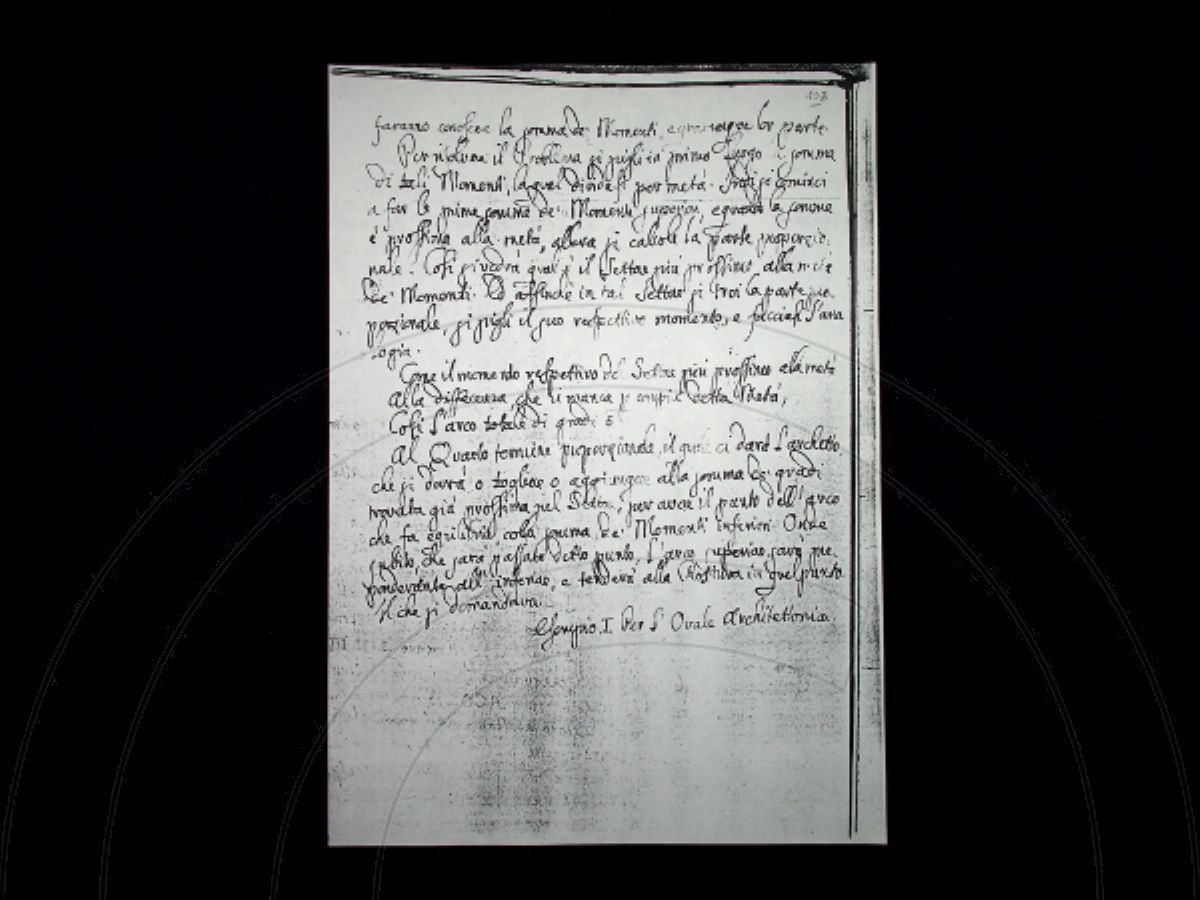 107
faranno conoscere la somma de' Momenti, e la parte.
Per risolvere il Problema si pigli in primo luogo la somma
di tali Momenti, la qual dividasi per metà. Indi si cominci
a far la prima somma de' Momenti superiori, e quando la somma
è prossima alla metà, allora si calcoli la parte proporzio
nale. Così si vedrà qual è il Settore più prossimo alla metà
de' Momenti. Ed affinchè in tal Settore si trovi la parte pro
porzionale, si pigli il suo respettivo momento, e facciasi l'ana
logia.
Come il momento respettivo del Settore più prossimo alla metà
Alla differenza, che ci manca p compir detta Metà;
Così l'arco totale di gradi 5
Al Quarto termine proporzionale, il quale ci darà l'archetto,
che si dovrà o togliere o aggiungere alla somma de' gradi
trovata già prossima nel Settore, per avere il punto dell'arco
che fa equilibrio colla somma de' Momenti inferiori. Onde
subito, che sarà passato detto punto, l'arco superiore sarà pre
ponderante all'inferiore, e tenderà alla Rottura in quel punto
Il che si domandava.
Esempio I. Per l'Ovale Architettonica.